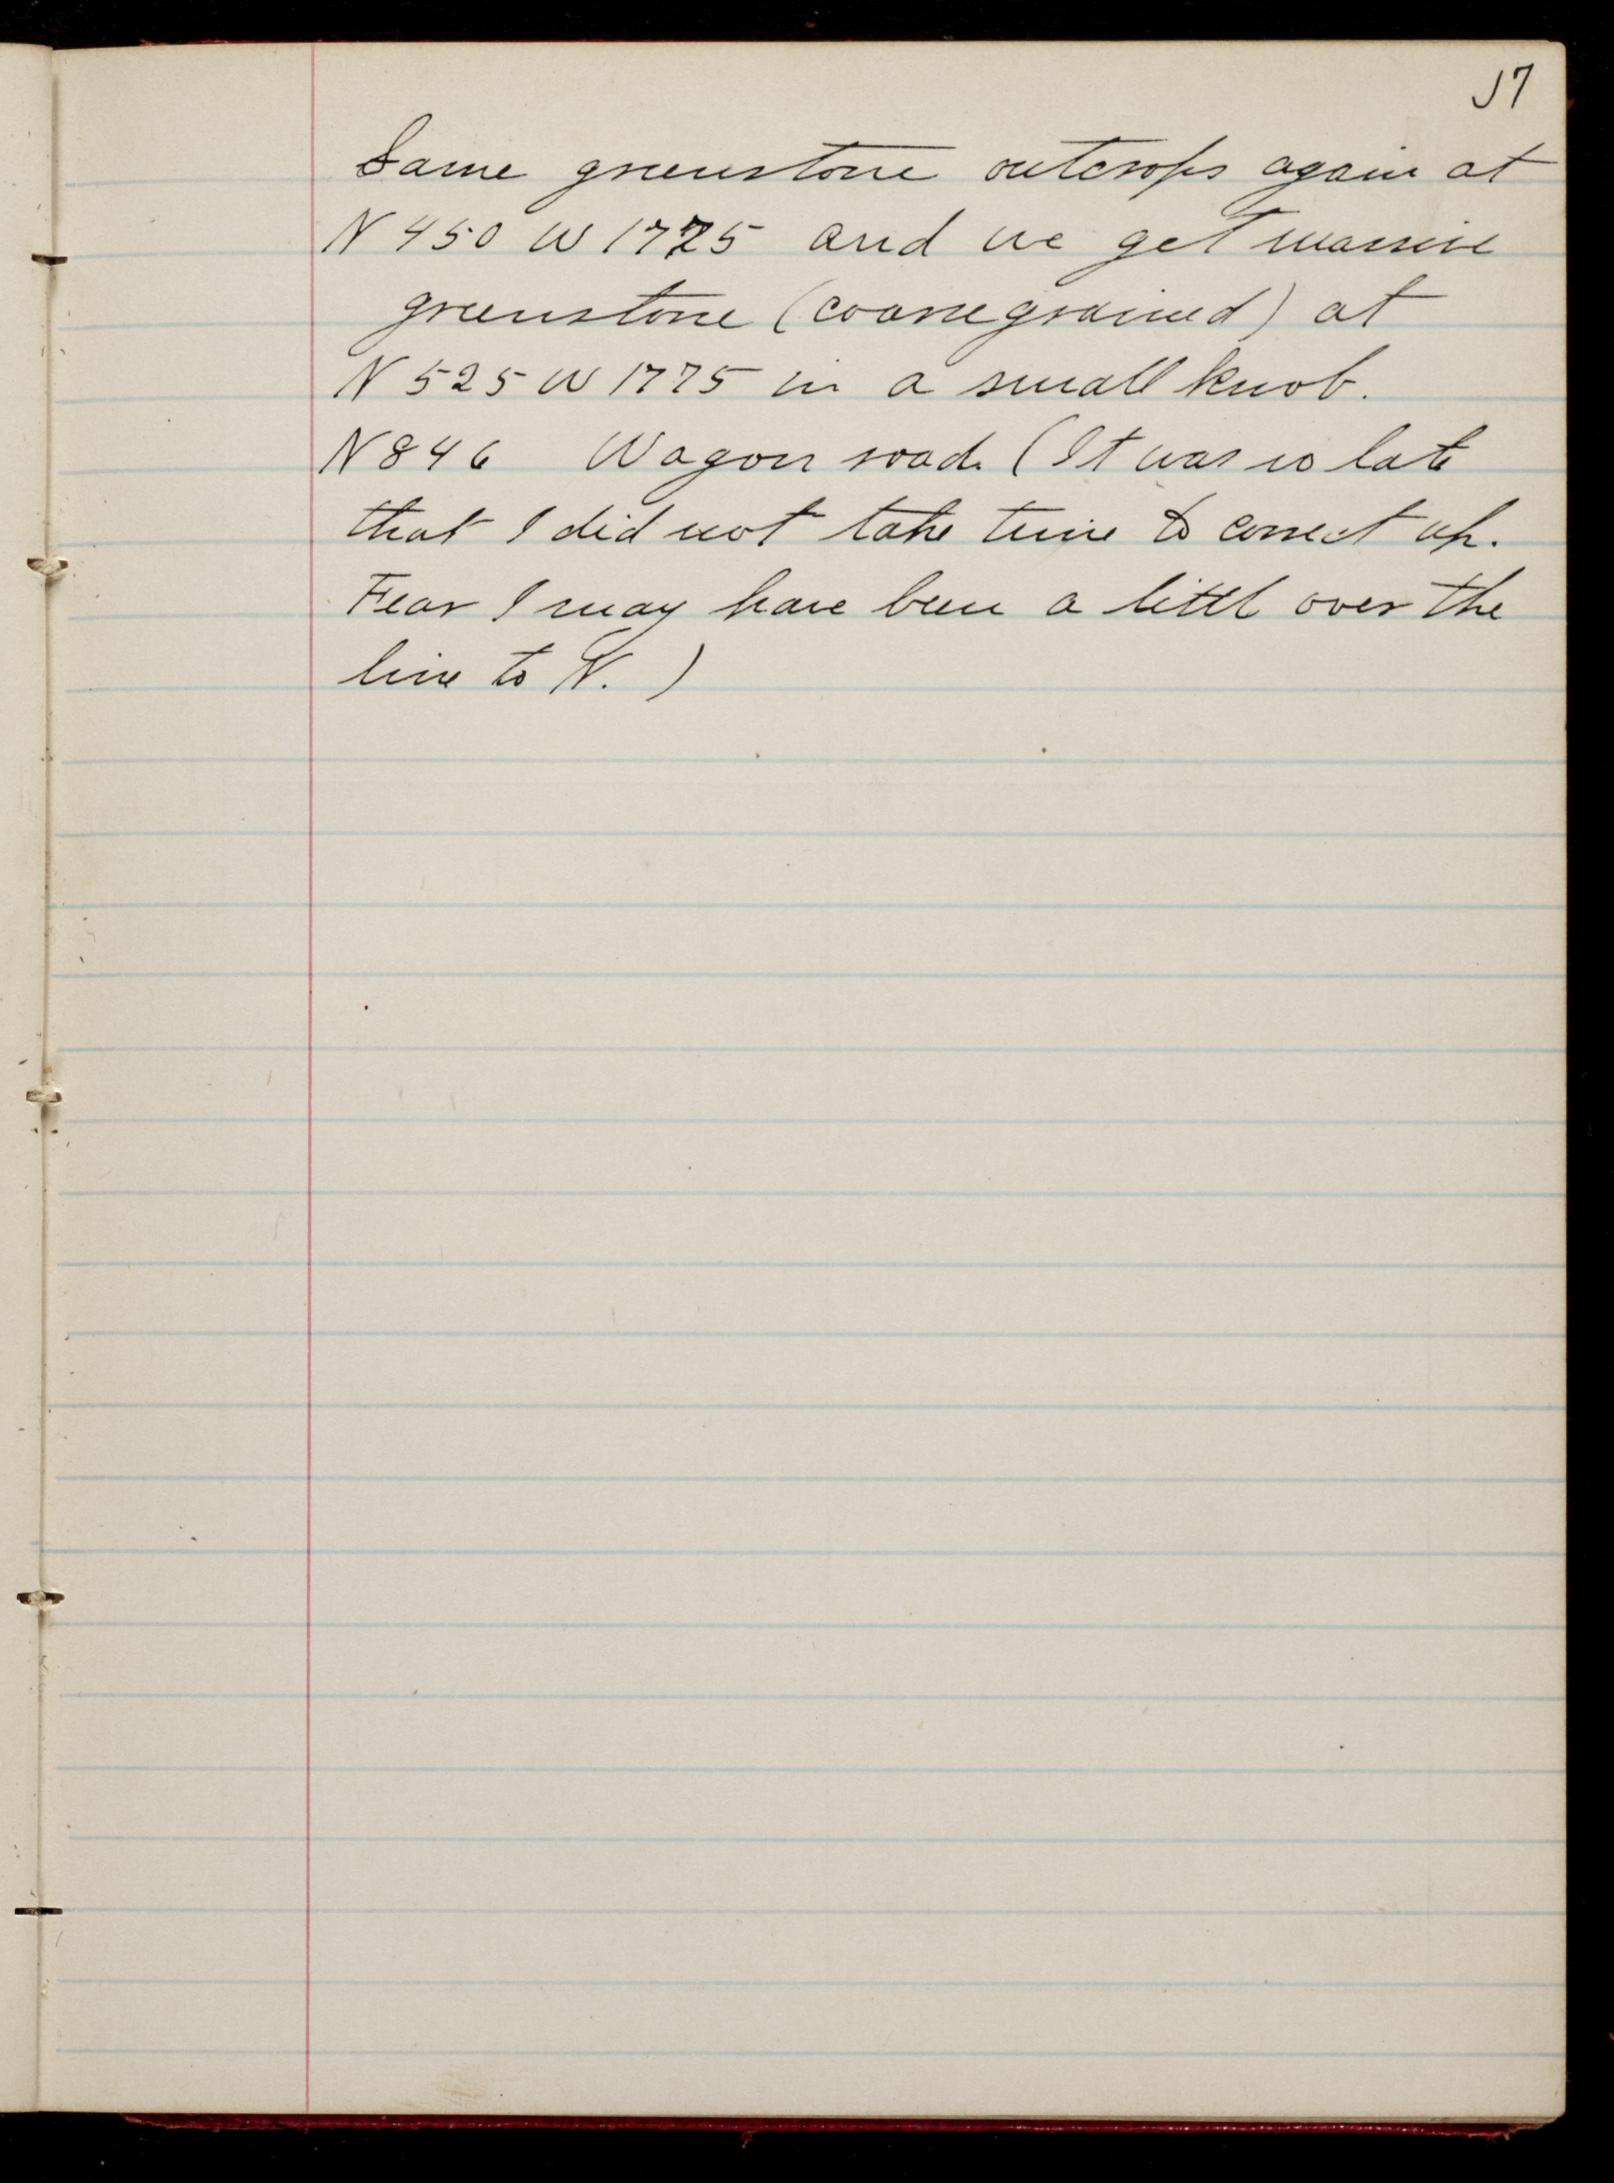 57
Same greenstone outcrops again at
N 450 W 1775 and we get massive
greenstone (coarse grained) at
N 525 W 1775 in a small knob.
N 846 Wagon road. (It was so late
that I did not take time to correct up.
Fear I may have been a littl over the
line to N. )